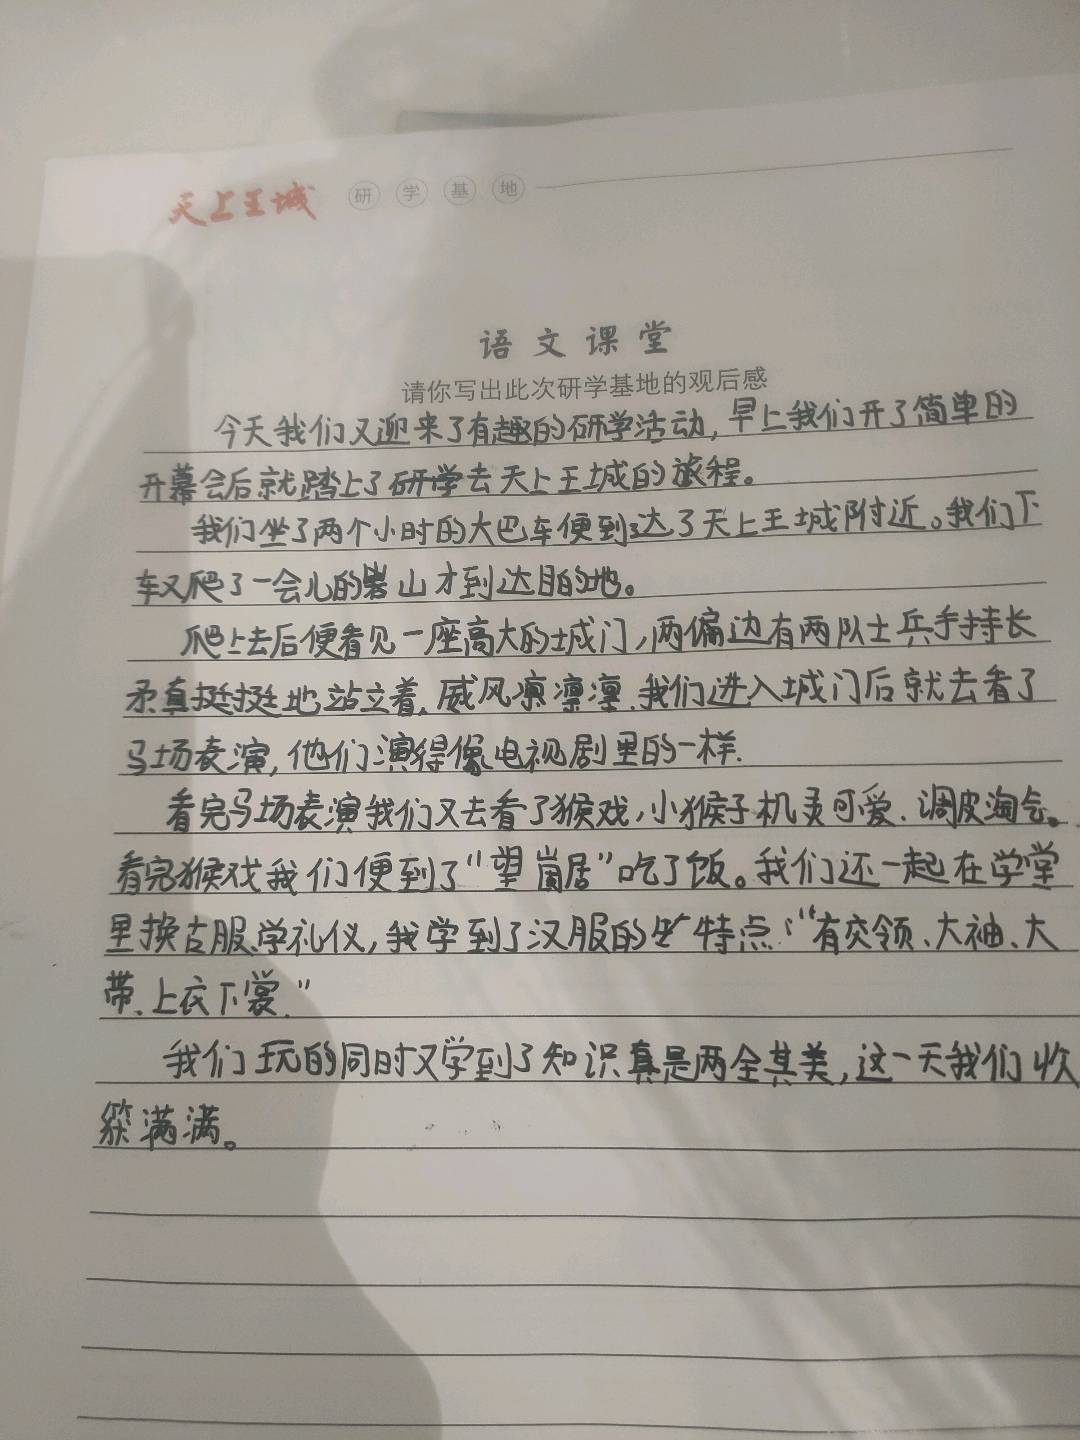 天上王城 研学基地
语文课堂
请你写出此次研学基地的观后感
今天我们又迎来了有趣的研学活动,早上我们开了简单的
开幕会后就踏上了研学去天上王城的旅程。
我们坐了两个小时的大巴车便到达了天上王城附近。我们下
车又爬了一会儿的山才到达目的地。
爬上去后便看见一座高大的城门,两偏边有两队士兵手持长
矛真挺挺地站立着,威风凛凛凛.我们进入城门后就去看了
马场表演,他们演得像电视剧里的一样.
看完马场表演我们又去看了猴戏,小猴子机灵可爱、调皮淘气。
看完猴戏我们便到了“望崮居”吃了饭。我们还一起在学堂
里换古服、学礼仪,我学到了汉服的特点:“有交领、大袖、大
带、上衣下裳.”
我们玩的同时又学到了知识真是两全其美,这一天我们收
获满满。